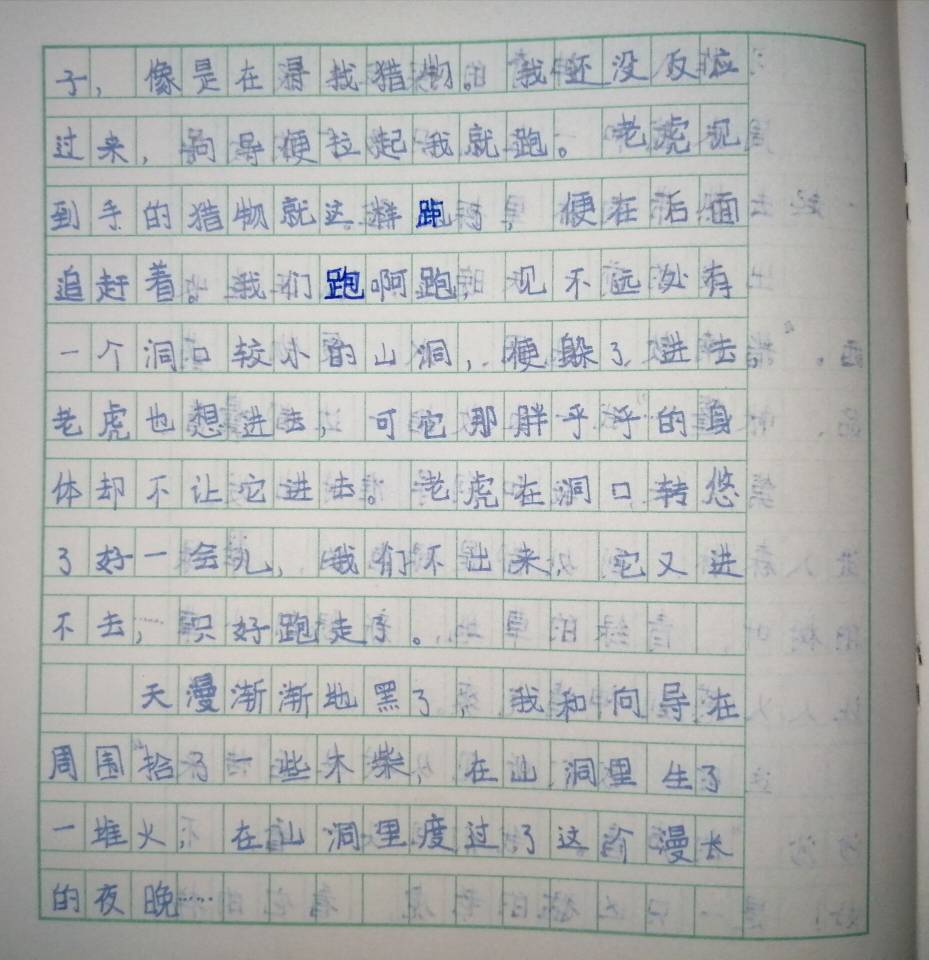 子，像是在寻找猎物。我还没反应
过来，向导便拉起我就跑。老虎见
到手的猎物就这样跑了，便在后面
追赶着。我们跑啊跑，见不远处有
一个洞口较小的山洞，便躲了进去。
老虎也想进去，可它那胖乎乎的身
体却不让它进去。老虎在洞口转悠
了好一会儿，我们不出来，它又进
不去，只好跑走了。
天漫渐渐地黑了，我和向导在
周围拾了一些木柴，在山洞里生了
一堆火，在山洞里度过了这个漫长
的夜晚……